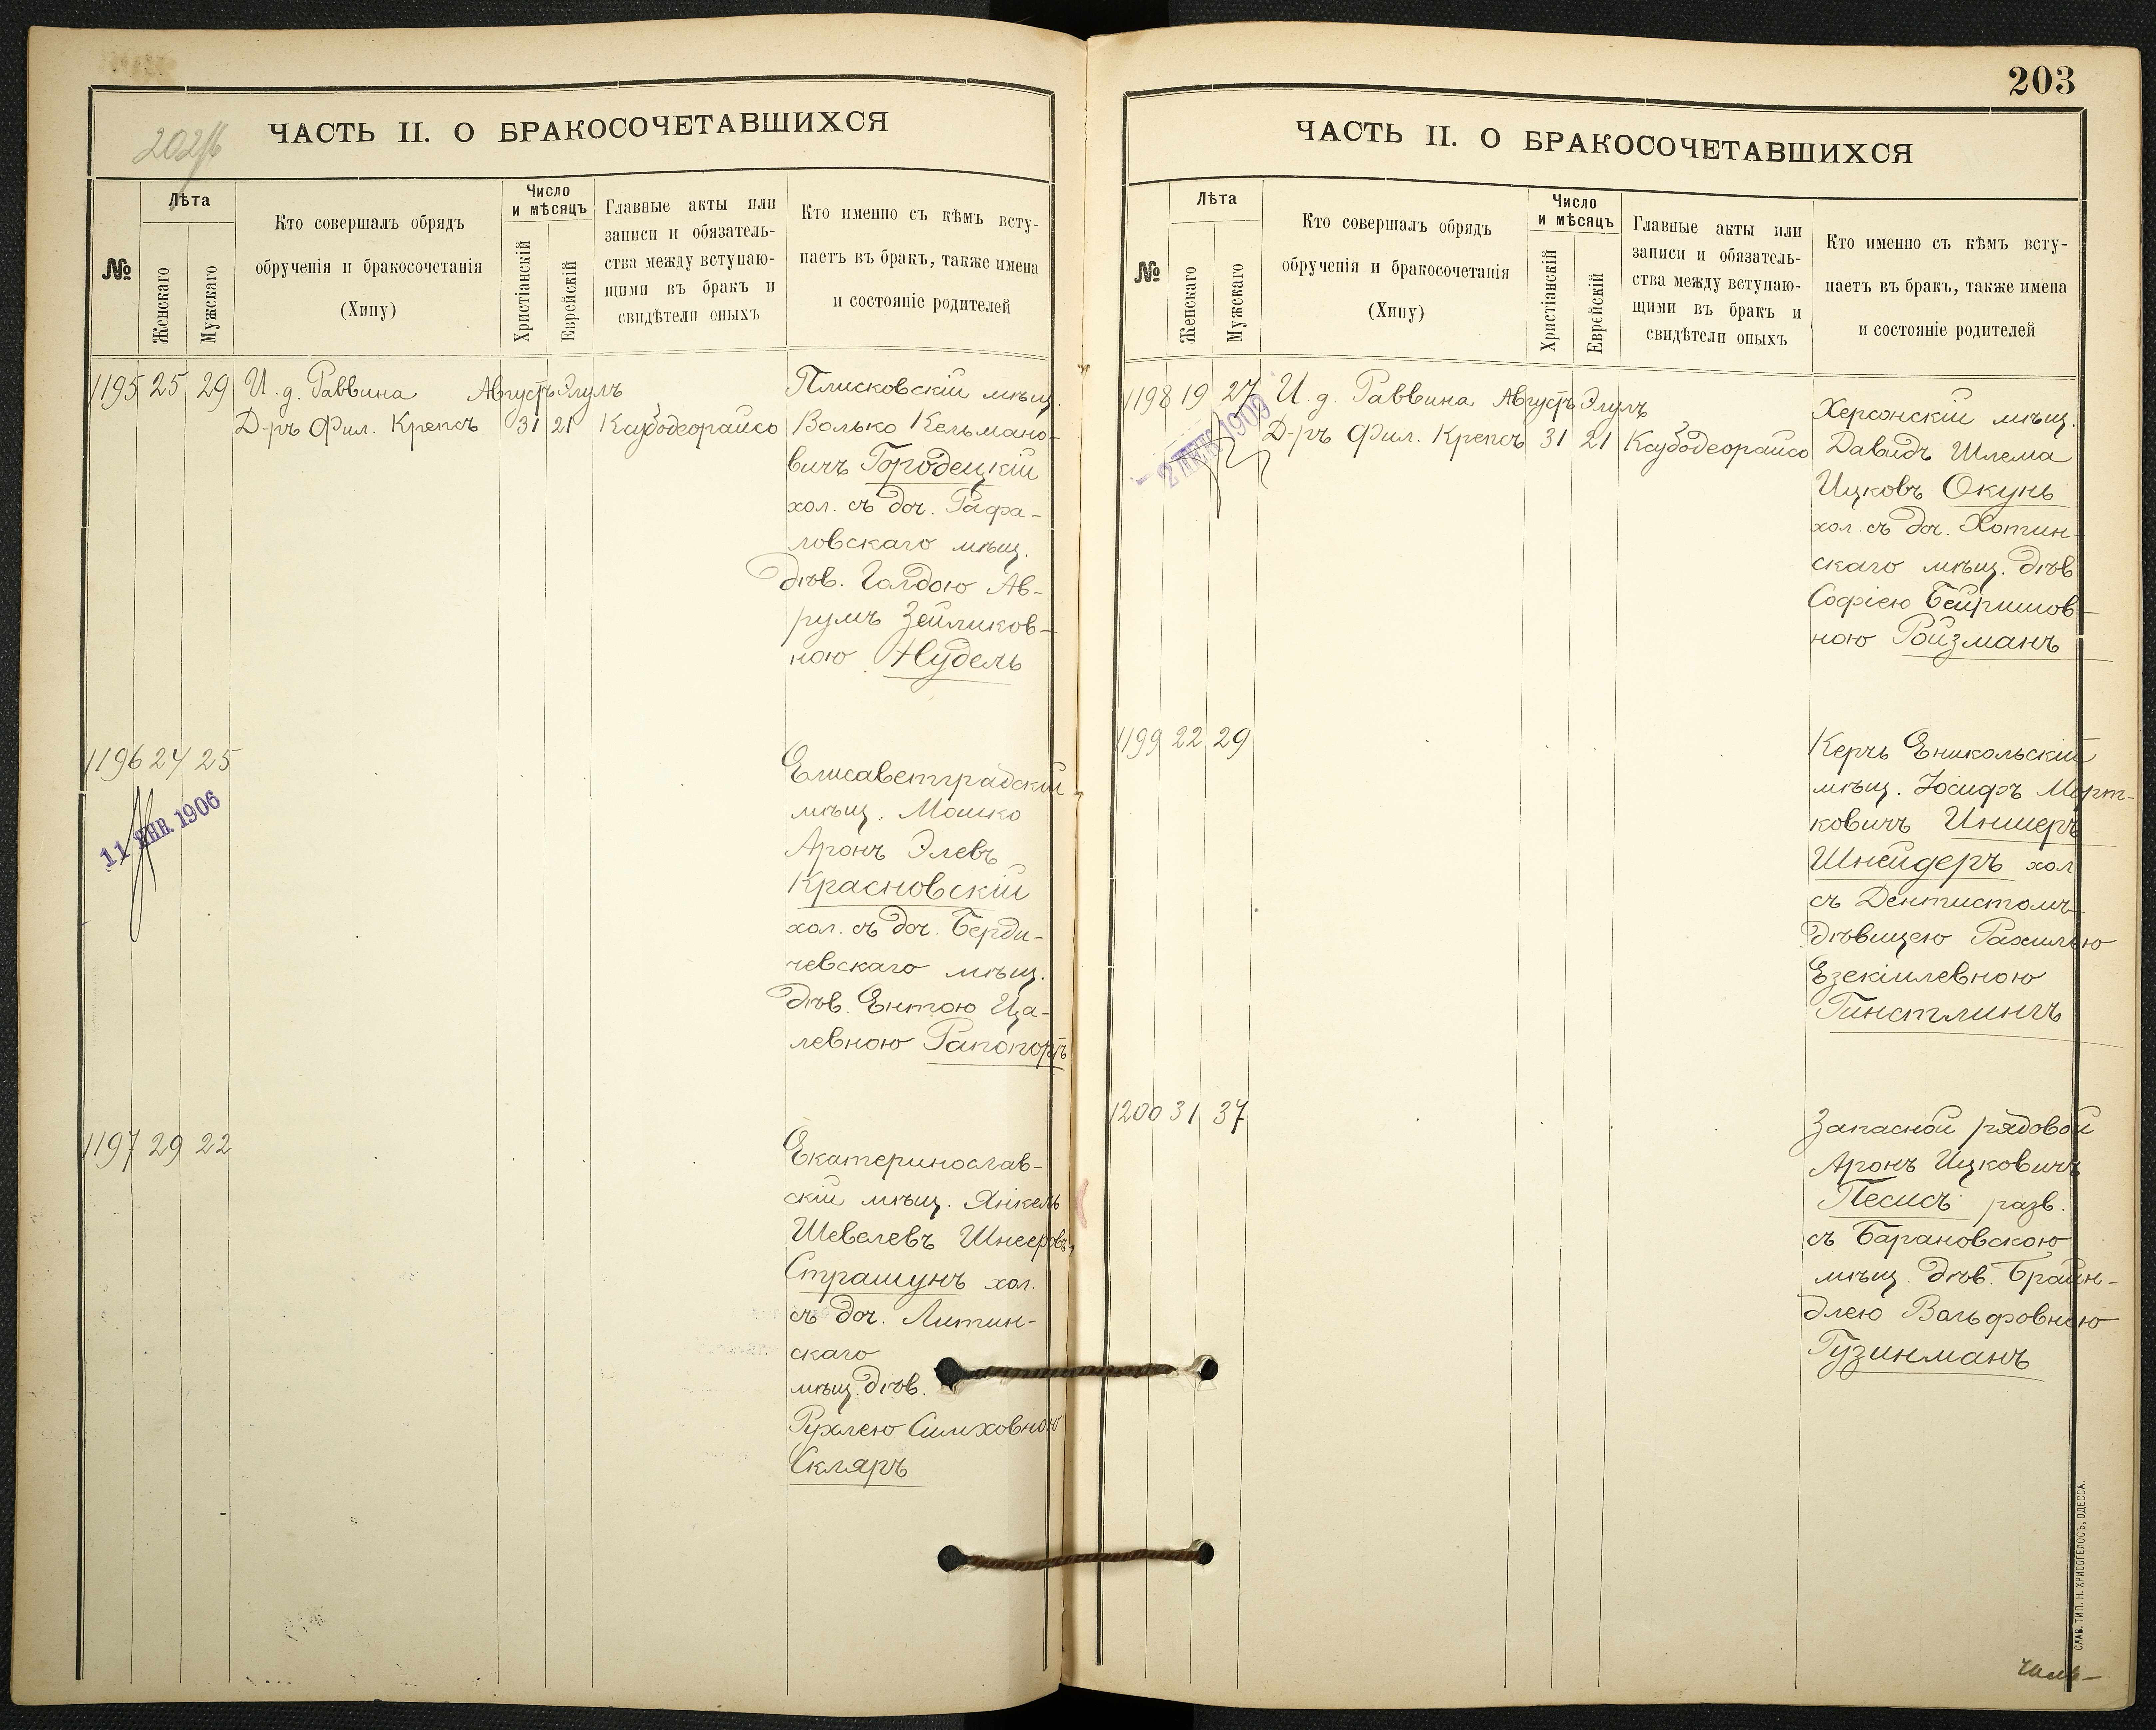 202 об
ЧАСТЬ II. О БРАКОСОЧЕТАВШИХСЯ
№
Лѣта
Женскаго
Мужскаго
Кто совершалъ обрядъ
обрученія и бракосочетанія
(Хипу)
Число
и мѣсяцъ
Христіанскій
Еврейскій
Главные акты или
записи и обязатель-
ства между вступаю-
щими въ бракъ и
свидѣтели оныхъ
Кто именно съ кѣмъ всту-
паетъ въ бракъ, также имена
и состояніе родителей
1195 25 29 И. д. Раввина Августъ Элулъ
Д-ръ Фил. Крепсъ 31 21 Каубодеорайсо
Плисковскій мѣщ.
Волько Кельмано-
вичъ Городецкій
хол. съ доч. Рафа-
ловскаго мѣщ.
дѣв. Голдою Ав-
румъ Зейликов-
ною Нудель
1196 24 25
11 ЯНВ. 1906
Елисаветградскій
мѣщ. Мошко
Аронъ Элевъ
Красновскій
хол. съ доч. Берди-
чевскаго мѣщ.
дѣв. Ентою Ца-
левною Рапопортъ
1197 29 22
Екатеринослав-
скій мѣщ. Янкель
Шевелевъ Шнееровъ
Страшунъ хол.
съ доч. Литин-
скаго
мѣщ. дѣв.
Рухлею Симховною
Скляръ
203
ЧАСТЬ II. О БРАКОСОЧЕТАВШИХСЯ
№
Лѣта
Женскаго
Мужскаго
Кто совершалъ обрядъ
обрученія и бракосочетанія
(Хипу)
Число
и мѣсяцъ
Христіанскій
Еврейскій
Главные акты или
записи и обязатель-
ства между вступаю-
щими въ бракъ и
свидѣтели оныхъ
Кто именно съ кѣмъ всту-
паетъ въ бракъ, также имена
и состояніе родителей
1198 19 27 И. д. Раввина Августъ Элулъ
Д-ръ Фил. Крепсъ 31 21 Каубодеорайсо
1909
Херсонскій мѣщ.
Давидъ Шлема
Ицковъ Окунь
хол. съ доч. Хотин-
скаго мѣщ. дѣв
Софіею Бейришов-
ною Ройзманъ
1199 22 29
Керчь Еникольскій
мѣщ. Іосифъ Морт-
ковичъ Иншеръ
Шнейдеръ хол
съ Дентистомъ
дѣвицею Рахилью
Езекіилевною
Гинстлингъ
1200 31 37
Запасной рядовой
Аронъ Ицковичъ
Песисъ разв.
съ Барановскою
мѣщ. дѣв. Брайн-
длею Вольфовною
Гузинманъ
СЛАВ. ТИП. Н. ХРИСОГЕЛОСЪ, ОДЕССА.